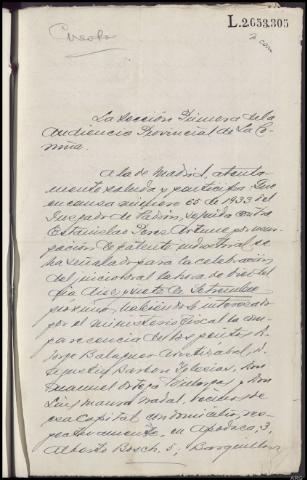 L.2.653.305
La Sección Primera de la
Audiencia Provincial de La Co-
ruña.
A la de Madrid, atenta-
mente saluda y participa: Que
en causa número 60 de 1933 del
Juzgado de Padrón, seguida contra
Estanislao Pérez Artime por usur-
pación de patente industrial se
ha señalado para la celebración
del juicio oral la hora de diez del
día diez y siete de Setiembre
próximo, habiéndose interesado
por el Ministerio Fiscal la com-
parecencia de los peritos D.
Jorge Balaguer D.
Iglesias, Don
Manuel Ortega y Don
Luis Maura Nadal, vecinos de
esa Capital con domicilio, res-
pectivamente, en Apodaca, 3,
Alberto Bosch, 5, Barquillo,